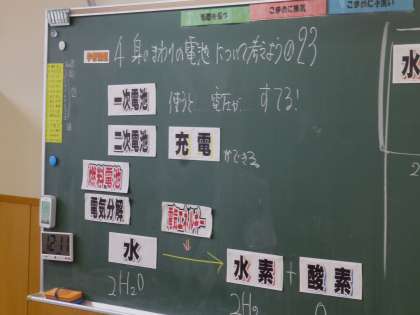 ごまめに換気
4 身のまわりの電池について考えよう
一次電池 使うと 電圧が
二次電池 充電 ができる。
燃料電池
電気分解 電気エネルギー
水 → 水素 + 酸素
2H₂O 2H₂
水